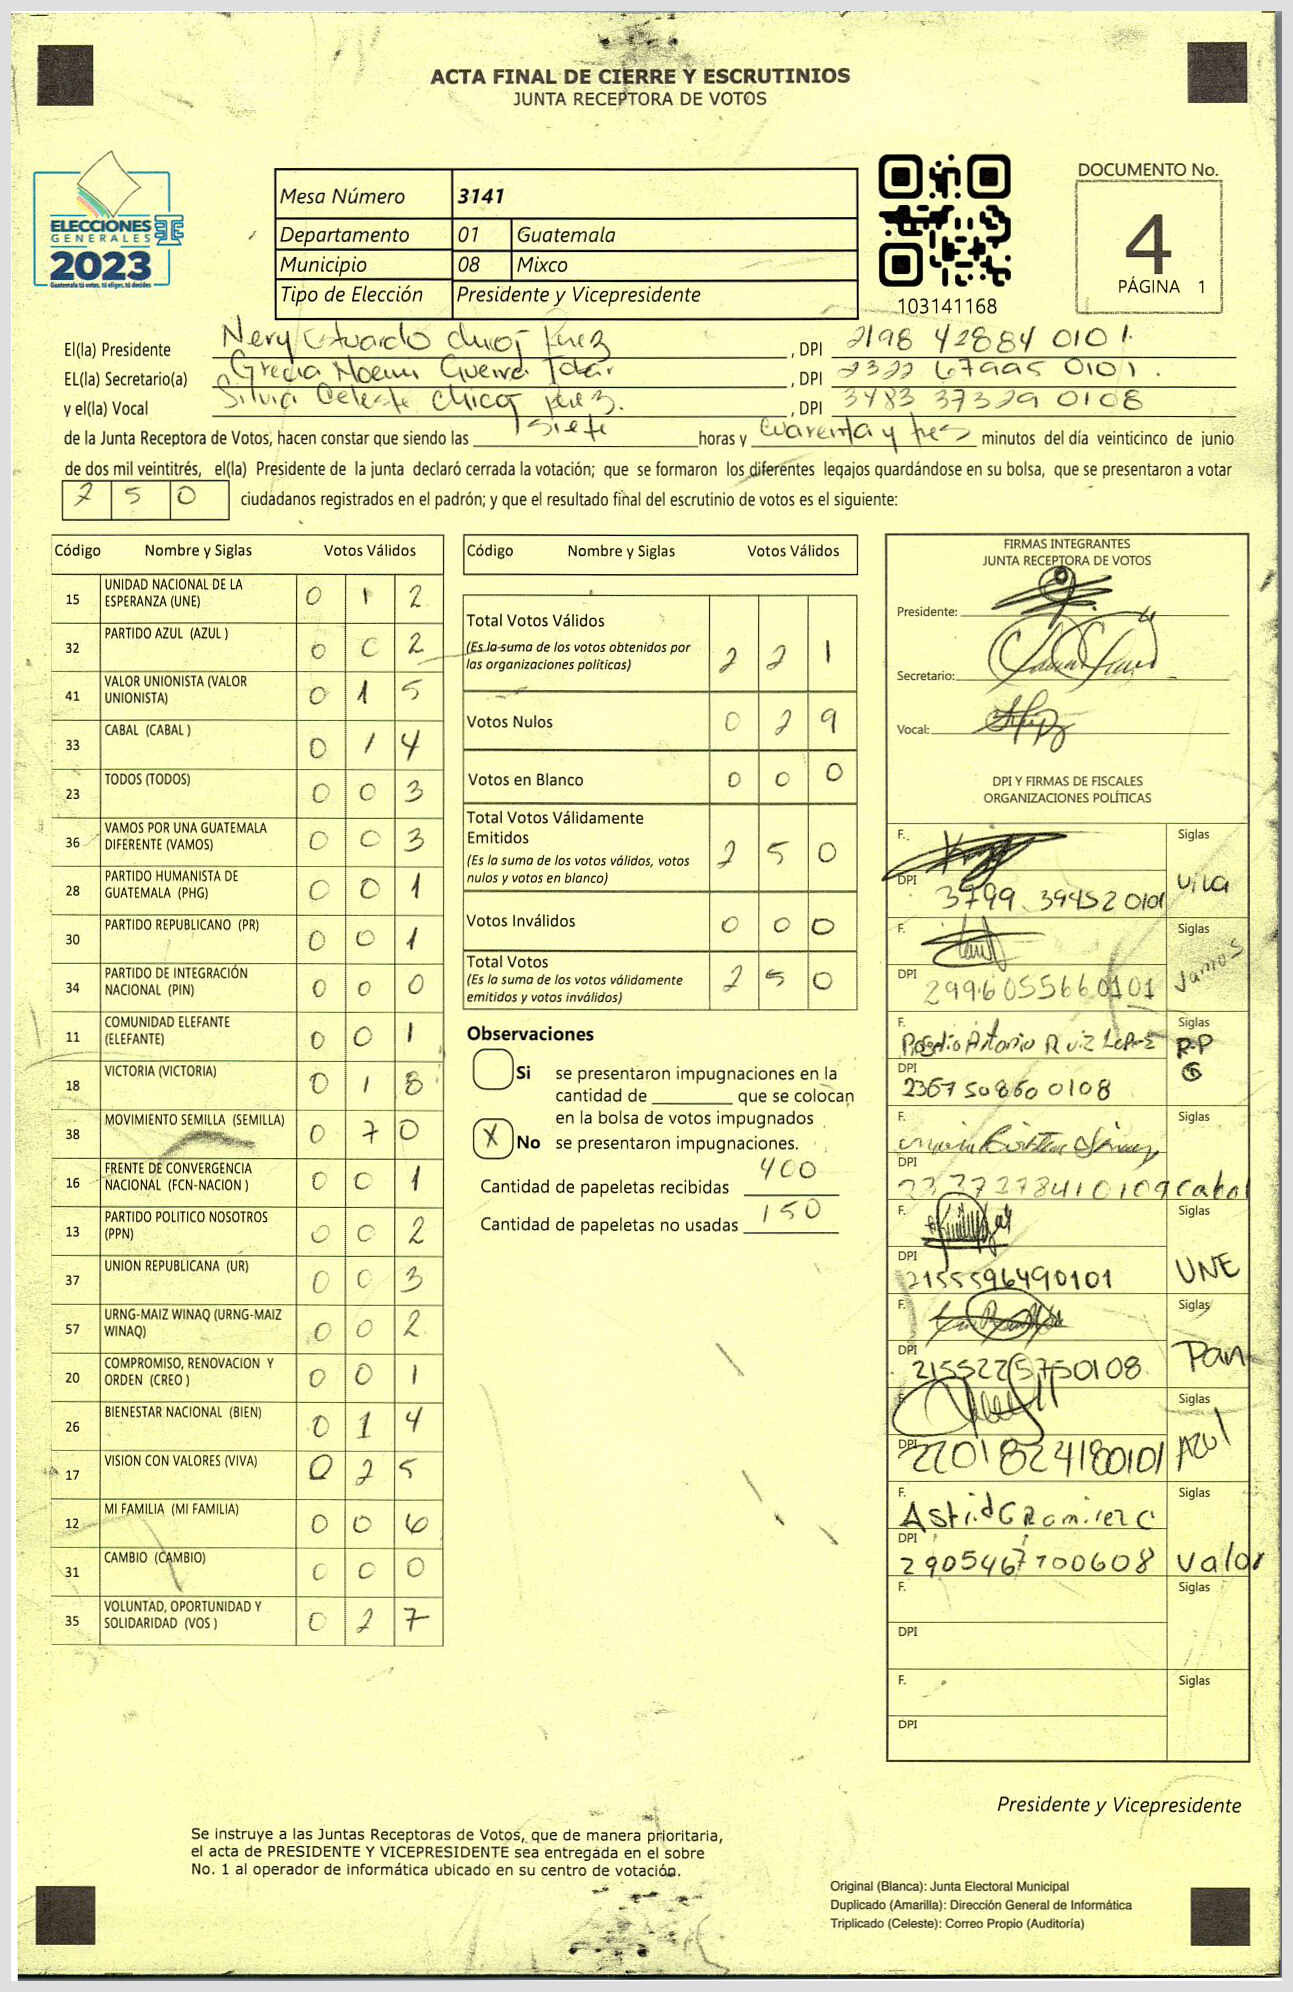 ACTA FINAL DE CIERRE Y ESCRUTINIOS
JUNTA RECEPTORA DE VOTOS
ELECCIONES
GENERALES
2023
Guatemala tú votas, tú eliges, tú decides
Mesa Número 3141
Departamento 01 Guatemala
Municipio 08 Mixco
Tipo de Elección Presidente y Vicepresidente
103141168
DOCUMENTO No.
4
PÁGINA 1
El(la) Presidente Nery Estuardo Chicoj Perez, DPI 2198 42884 0101.
EL(la) Secretario(a) Grecia Noemi Guerra, DPI 2322 67995 0101.
y el(la) Vocal Silvia Celeste Chicoj Perez., DPI 3483 37329 0108
de la Junta Receptora de Votos, hacen constar que siendo las siete horas y cuarenta y tres minutos del día veinticinco de junio
de dos mil veintitrés, el(la) Presidente de la junta declaró cerrada la votación; que se formaron los diferentes legajos guardándose en su bolsa, que se presentaron a votar
2 5 0 ciudadanos registrados en el padrón; y que el resultado final del escrutinio de votos es el siguiente:
Código Nombre y Siglas Votos Válidos
15 UNIDAD NACIONAL DE LA ESPERANZA (UNE) 0 1 2
32 PARTIDO AZUL (AZUL ) 0 0 2
41 VALOR UNIONISTA (VALOR UNIONISTA) 0 1 5
33 CABAL (CABAL ) 0 1 4
23 TODOS (TODOS) 0 0 3
36 VAMOS POR UNA GUATEMALA DIFERENTE (VAMOS) 0 0 3
28 PARTIDO HUMANISTA DE GUATEMALA (PHG) 0 0 1
30 PARTIDO REPUBLICANO (PR) 0 0 1
34 PARTIDO DE INTEGRACIÓN NACIONAL (PIN) 0 0 0
11 COMUNIDAD ELEFANTE (ELEFANTE) 0 0 1
18 VICTORIA (VICTORIA) 0 1 8
38 MOVIMIENTO SEMILLA (SEMILLA) 0 7 0
16 FRENTE DE CONVERGENCIA NACIONAL (FCN-NACION ) 0 0 1
13 PARTIDO POLITICO NOSOTROS (PPN) 0 0 2
37 UNION REPUBLICANA (UR) 0 0 3
57 URNG-MAIZ WINAQ (URNG-MAIZ WINAQ) 0 0 2
20 COMPROMISO, RENOVACION Y ORDEN (CREO ) 0 0 1
26 BIENESTAR NACIONAL (BIEN) 0 1 4
17 VISION CON VALORES (VIVA) 0 2 5
12 MI FAMILIA (MI FAMILIA) 0 0 6
31 CAMBIO (CAMBIO) 0 0 0
35 VOLUNTAD, OPORTUNIDAD Y SOLIDARIDAD (VOS ) 0 2 7
Código Nombre y Siglas Votos Válidos
Total Votos Válidos
(Es la suma de los votos obtenidos por
las organizaciones políticas) 2 2 1
Votos Nulos 0 2 9
Votos en Blanco 0 0 0
Total Votos Válidamente
Emitidos
(Es la suma de los votos válidos, votos
nulos y votos en blanco) 2 5 0
Votos Inválidos 0 0 0
Total Votos
(Es la suma de los votos válidamente
emitidos y votos inválidos) 2 5 0
Observaciones
Si se presentaron impugnaciones en la
cantidad de ________ que se colocan
en la bolsa de votos impugnados
X No se presentaron impugnaciones.
Cantidad de papeletas recibidas 400
Cantidad de papeletas no usadas 150
FIRMAS INTEGRANTES
JUNTA RECEPTORA DE VOTOS
Presidente:
Secretario:
Vocal:
DPI Y FIRMAS DE FISCALES
ORGANIZACIONES POLÍTICAS
F. Siglas
DPI 3799 39452 0101 Viva
F. Siglas
DPI 2996055660101 Vamos
F. Rogelio Antonio Ruiz Lopez Siglas
DPI 2367508600108 R.P
F. Siglas
DPI Cabal
F. Siglas
DPI 2155596490101 UNE
F. Siglas
DPI 2155225750108 Pan
F. Siglas
DPI 2201824180101 Azul
F. Astrid G Ramirez C Siglas
DPI 2905467100608 Valor
F. Siglas
DPI
F. Siglas
DPI
Presidente y Vicepresidente
Se instruye a las Juntas Receptoras de Votos, que de manera prioritaria,
el acta de PRESIDENTE Y VICEPRESIDENTE sea entregada en el sobre
No. 1 al operador de informática ubicado en su centro de votación.
Original (Blanca): Junta Electoral Municipal
Duplicado (Amarilla): Dirección General de Informática
Triplicado (Celeste): Correo Propio (Auditoría)